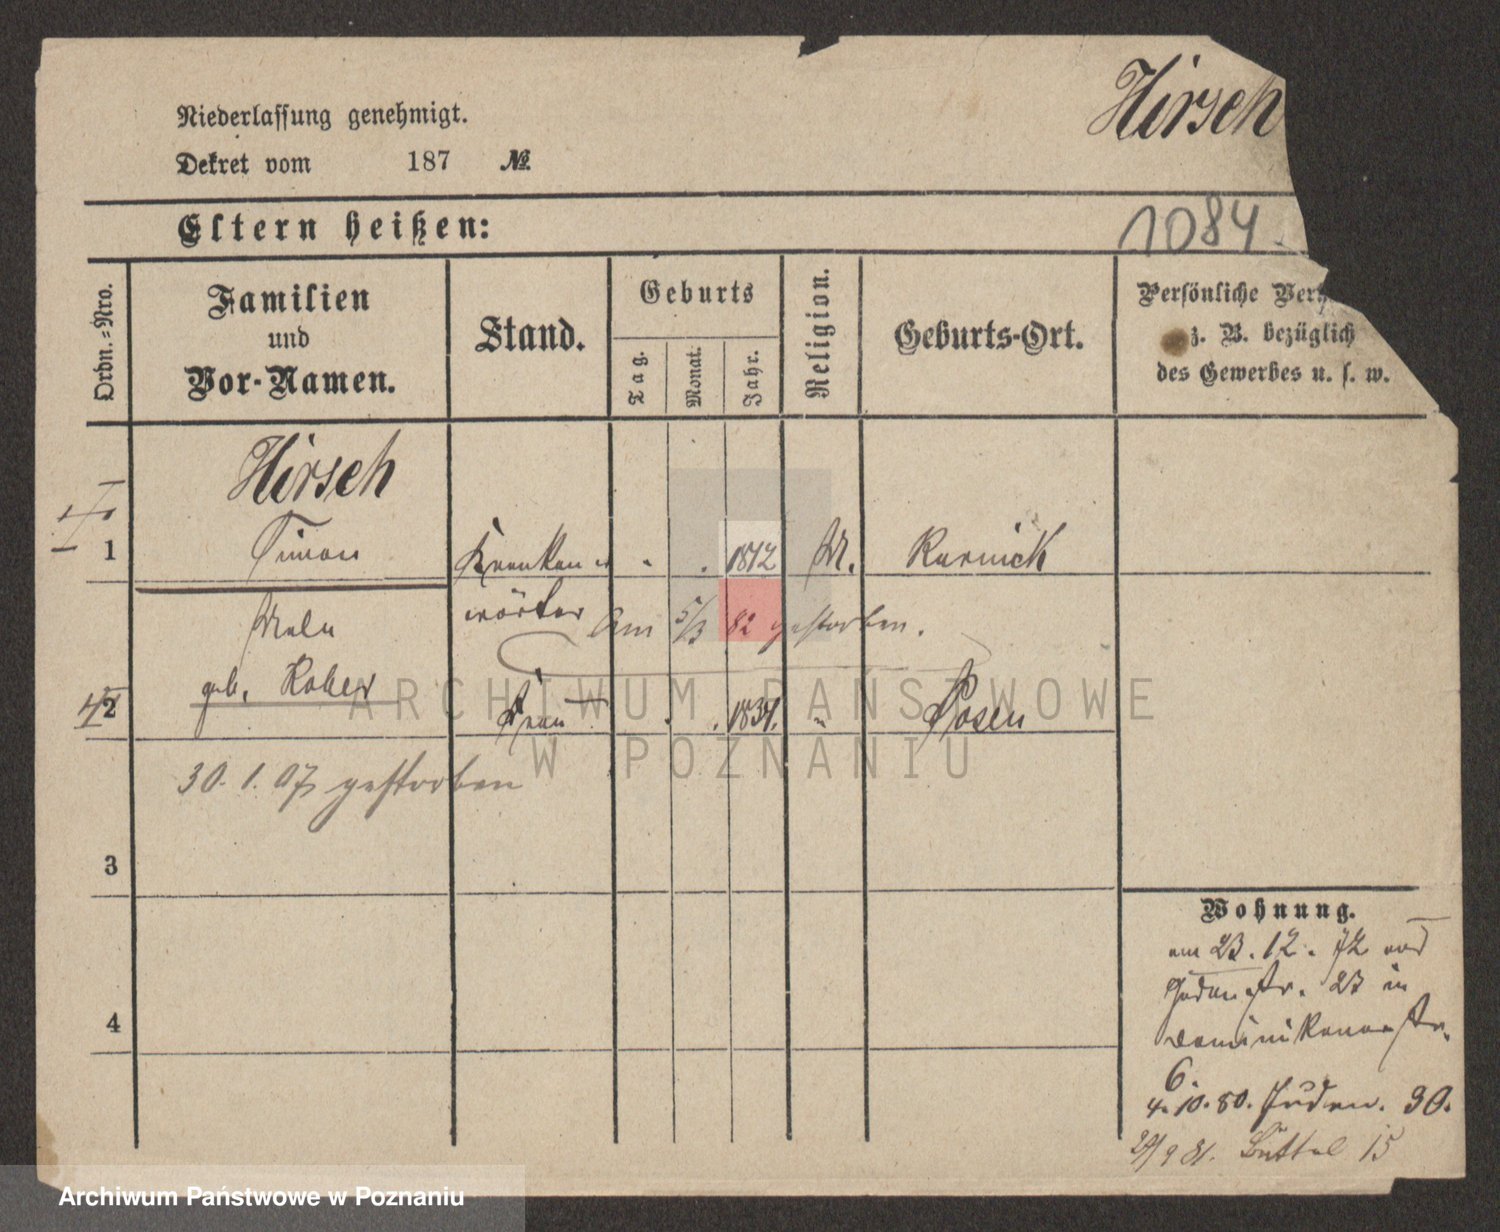 Hirsch
Niederlassung genehmigt.
Dekret vom 187 №
Eltern heißen:
1084.
Ordn.-Nro.
Familien
und
Vor-Namen.
Stand.
Geburts
Tag.
Monat.
Jahr.
Religion.
Geburts-Ort.
Persönliche
z. B. bezüglich
des Gewerbes u. s. w.
Hirsch
1 Simon Kranken 1812 M. Kurnick
wärter
Am 5/3 82 gestorben.
Male
geb. Kober
2 Frau 1834. " Posen
30. 1. 07 gestorben
3
4
Wohnung.
am 23. 12. 72 von
Judenstr. 23 in
Dominikanerstr.
6.
4. 10. 80. Juden. 30.
29/9 81. Büttel 15
ARCHIWUM PAŃSTWOWE
W POZNANIU
Archiwum Państwowe w Poznaniu